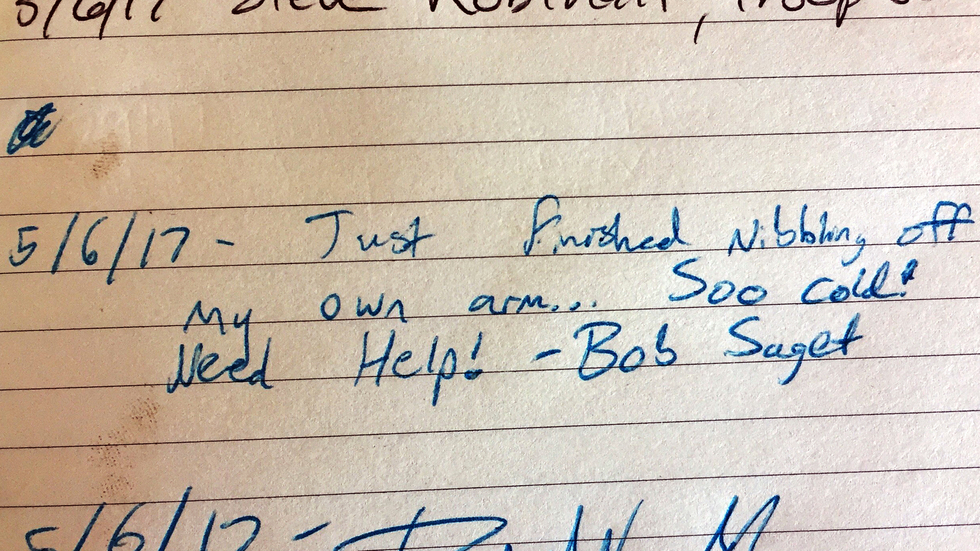 5/6/17 Steve
5/6/17 - Just finished Nibbling off
My own arm... Soo cold!
Need Help! - Bob Saget
5/6/17 -